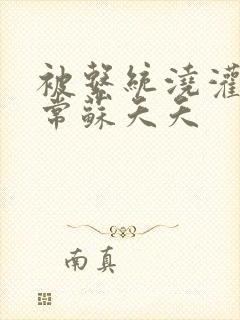 被繫統澆灌
常蘇天天
南真